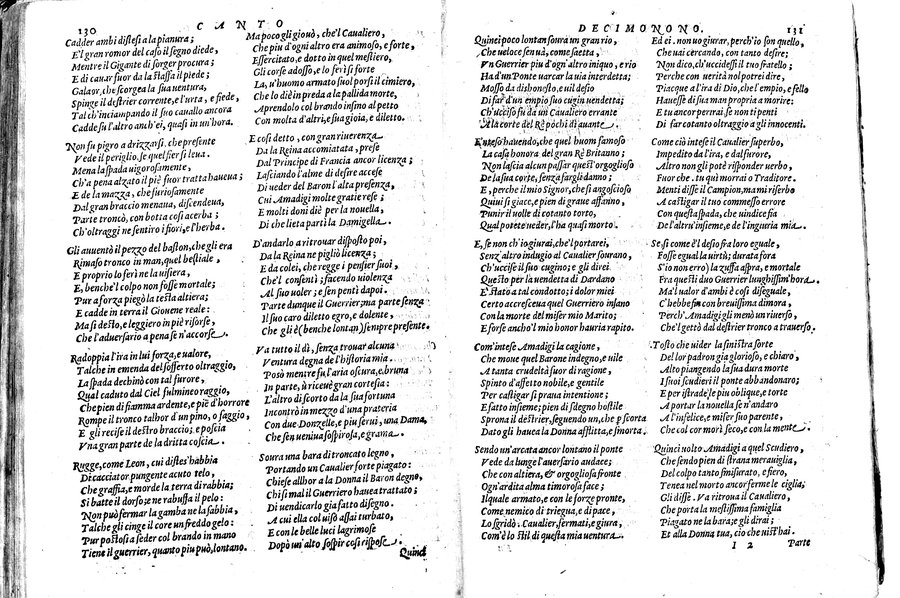 130
CANTO
Cadder ambi distesi a la pianura;
E'l gran romor del caso il segno diede,
Mentre il Gigante di sorger procura;
E di cavar fuor da la staffa il piede;
Galaor, che scorge a la sua uentura,
Spinge il destrier corrente, e l'urta, e fiede,
Tal ch'inciampando il suo cauallo ancora
Cadde su l'altro anch'ei, quasi in un'hora.
Non fu pigro a drizzarsi, che presente
Vede il periglio, se quel fier si leua.
Mena la spada uigorosamente,
Ch'a pena alzato il piè fuor tratto haueua;
E de la mazza, che furiosamente
Dal gran braccio menana, discendeua,
Parte troncò, con botta così acerba;
Ch'oltraggi ne sentiro i fiori, e l'herba.
Gli auuentò il pezzo del baston, che gli era
Rimaso tronco in man, quel bestiale,
E proprio lo ferì ne la uisiera,
E, benche'l colpo non fosse mortale;
Pur a forza piegò la testa altiera;
E cadde in terra il Giouene reale:
Ma sì desto, e leggiero in piè risorse,
Che l'aduersario a pena se n'accorse.
Radoppia l'ira in lui forza, e ualore,
Talche in emenda del sofferto oltraggio,
La spada dechinò con tal furore,
Qual caduto dal Ciel fulmineo raggio,
Che pien di fiamma ardente, e pie d'horrore
Rompe il tronco talhor d'un pino, o faggio,
E gli recise il destro braccio; e poscia
Vna gran parte de la dritta coscia.
Rugge, come Leon, cui distes'habbia
Di cacciator pungente acuto telo,
Che graffia, e morde la terra di rabbia;
Si batte il dorso; e ne rabuffa il pelo:
Non può fermar la gamba ne la sabbia,
Talche gli cinge il core un freddo gelo:
Pur postosi a seder col brando in mano
Tiene il guerrier, quanto piu può, lontano.
Ma poco gli giouò, che'l Caualiero,
Che piu d'ogni altro era animoso, e forte,
Essercitato, e dotto in quel mestiero,
Gli corse adosso, e lo ferì sì forte
La, u'huomo armato suol porsi il cimiero,
Che lo diè in preda a la pallida morte,
Aprendolo col brando insino al petto
Con molta d'altri, e sua gioia, e diletto.
E così detto, con gran riuerenza
Da la Reina accomiatata, prese
Dal Principe di Francia ancor licenza;
Lasciando l'alme di desire accese
Di ueder del Baron l'alta presenza,
Cui Amadigi molte gratie rese;
E molti doni diè per la nouella,
Di che lieta partì la Damigella.
D'andarlo a ritrouar disposto poi,
Da la Reina ne pigliò licenza;
E da colei, che regge i pensier suoi,
Che'l consentì; facendo violenza
Al suo uoler; e sen partì dapoi.
Parte dunque il Guerrier; ma parte senza
Il suo caro diletto egro, e dolente,
Che gli è (benche lontan) sempre presente.
Va tutto il dì, senza trouar alcuna
Ventura degna de l'historia mia.
Posò mentre fu l'aria oscura, e bruna
In parte, ù riceuè gran cortesia:
L'altro dì scorto da la sua fortuna
Incontrò in mezzo d'una prateria
Con due Donzelle, e piu serui, una Dama,
Che sen ueniua sospirosa, e grama.
Soura una bara di troncato legno,
Portando un Caualier forte piagato:
Chiese allhor a la Donna il Baron degno,
Chi sì mal il Guerriero hauea trattato;
Di uendicarlo gia fatto disegno.
A cui ella col uiso assai turbato,
E con le belle luci lagrimose
Dopò un'alto sospir così rispose.
Quinci
DECIMONONO.
131
Quinci poco lontan soura un gran rio,
Che ueloce sen uà, come saetta,
Vn Guerrier piu d'ogn'altro iniquo, e rio
Ha d'un Ponte uarcar la uia interdetta;
Mosso da dishonesto, e uil desio
Di far d'un empio suo cugin uendetta;
Ch'ucciso fu da un Caualiero errante
A la corte del Re pochi dì auante.
Inteso hauendo, che quel huom famoso
La casa honora del gran Rè Britanno;
Non lascia alcun passar quest'orgoglioso
De la sua corte, senza fargli danno;
E, perche il mio Signor, che sì angoscioso
Quiui si giace, e pien di graue affanno,
Punir il uolle di cotanto torto,
Qual potete ueder, l'ha quasi morto.
E, se non ch'io giurai, che'l portarei,
Senz'altro indugio al Caualier sourano,
Ch'uccise il suo cugino; e gli direi
Questo per la uendetta di Dardano
E' stato a tal condotto; i dolor miei
Certo accresceua quel Guerriero insano
Con la morte del miser mio Marito;
E forse ancho'l mio honor hauria rapito.
Com'intese Amadigi la cagione,
Che moue quel Barone indegno, e uile
A tanta crudeltà fuor di ragione,
Spinto d'affetto nobile, e gentile
Per castigar sì praua intentione;
E satto insieme; pien di sdegno hostile
Sprona il destrier, seguendo un, che p scorta
Dato gli hauea la Donna afflitta, e smorta.
Sendo un'arcata ancor lontano il ponte
Vede da lunge l'auersario audace;
Che con altiera, & orgogliosa fronte
Ogn'ardita alma timorosa face;
Il quale armato, e con le forze pronte,
Come nemico di triegua, e di pace,
Lo sgridò. Caualier, fermati, e giura,
Com'è lo stil di questa mia uentura.
Ed ei. non uo giurar, perch'io son quello,
Che uai cercando, con tanto desire;
Non dico, ch'uccidessi il tuo fratello;
Perche con uerità nol potrei dire,
Piacque a l'ira di Dio, che l'empio, e fello
Hauesse di sua man propria a morire:
E tu ancor perirai, se non ti penti
Di far cotanto oltraggio a gli innocenti.
Come ciò intese il Caualier superbo,
Impedito da l'ira, e dal furore,
Altro non gli potè risponder uerbo,
Fuor che. tu quì morrai o Traditore.
Menti disse il Campion, ma mi riserbo
A castigar il tuo commesso errore
Con questa spada, che uindice sia
De l'altru'insieme, e de l'ingiuria mia.
Se sì come è'l desio fra loro eguale,
Fosse egual la uirtù; durata fora
(S'io non erro) la zuffa aspra, e mortale
Fra questi duo Guerrier lunghissim'hora.
Ma'l ualor d'ambi è così diseguale,
C'hebbe fin con breuissima dimora,
Perch'Amadigi gli menò un riuerso,
Che'l gettò dal destrier tronco a trauerso.
Tosto che uider la sinistra sorte
Del lor padron gia glorioso, e chiaro,
Alto piangendo la sua dura morte
I suoi scudieri il ponte abbandonaro;
E per istrade le piu oblique, e torte
A portar la nouella se n'andaro
A l'infelice, e miser suo parente,
Che col cor morì seco, e con la mente.
Quinci uolto Amadigi a quel Scudiero,
Che sendo pien di strana merauiglia,
Del colpo tanto smisurato, e fiero,
Tenea nel mento ancor ferme le ciglia;
Gli disse. Va ritroua il Caualiero,
Che porta la mestissima famiglia
Piagato ne la bara; e gli dirai;
Et alla Donna tua, ciò che uist'hai.
I 2
Parte